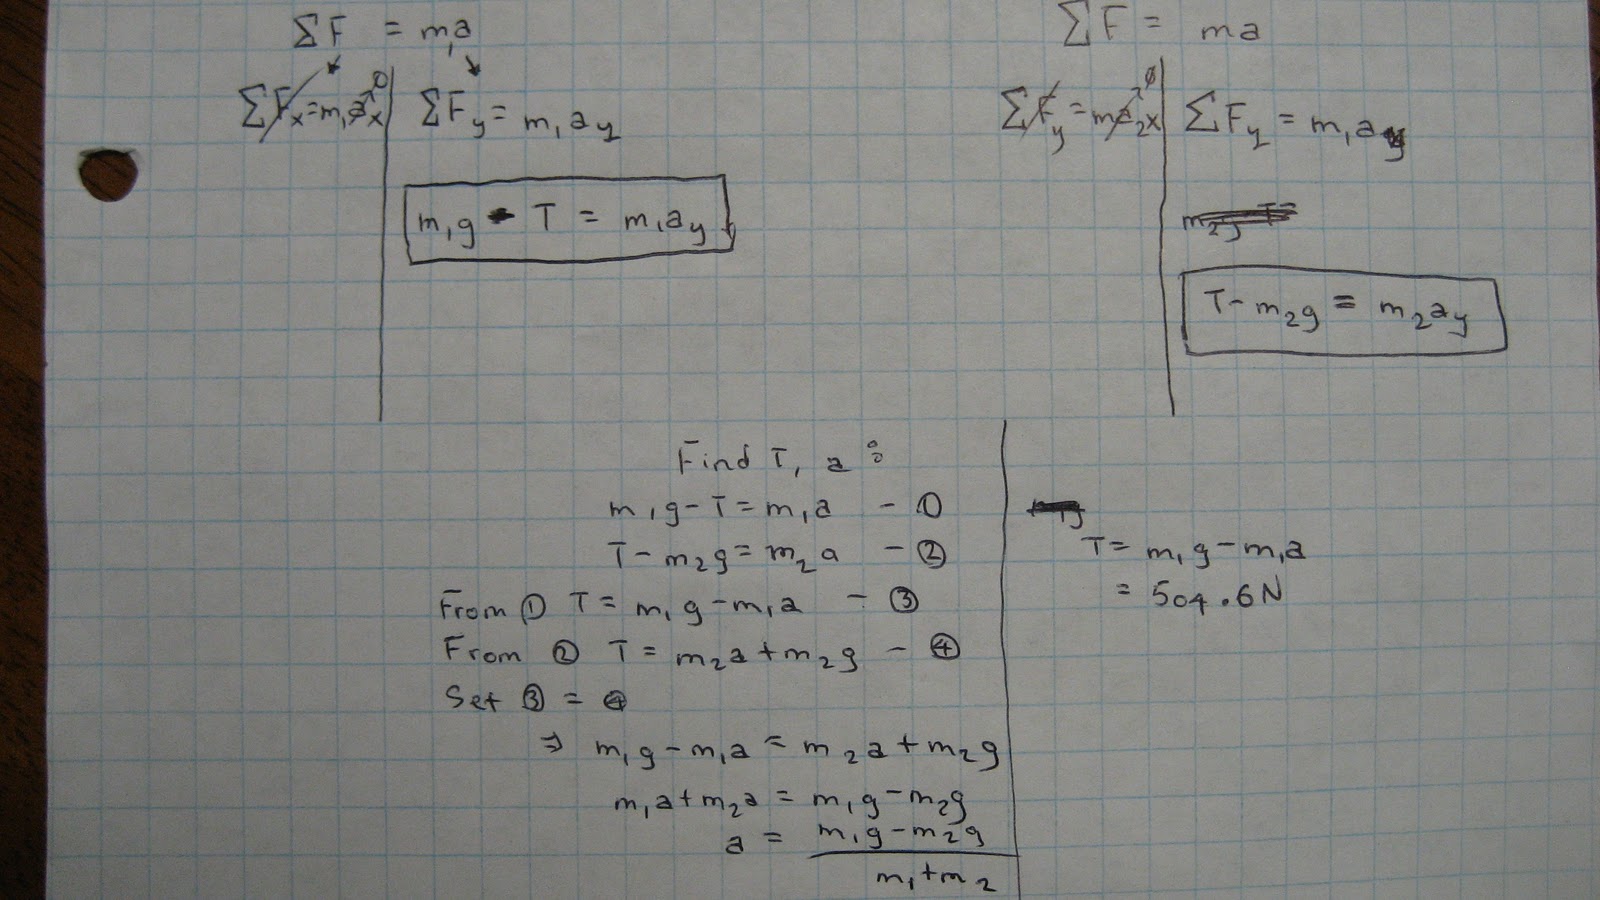 ΣF = m₁a
ΣFₓ = m₁aₓ 0
ΣF_y = m₁a_y
m₁g - T = m₁a_y
ΣF = ma
ΣF_y = ma₂x 0
ΣF_y = m₁a_y
m₂g T=
T - m₂g = m₂a_y
Find T, a :
m₁g - T = m₁a - ①
T - m₂g = m₂a - ②
From ① T = m₁g - m₁a - ③
From ② T = m₂a + m₂g - ④
Set ③ = ④
⇒ m₁g - m₁a = m₂a + m₂g
m₁a + m₂a = m₁g - m₂g
a = m₁g - m₂g
m₁ + m₂
T = m₁g - m₁a
= 504.6N